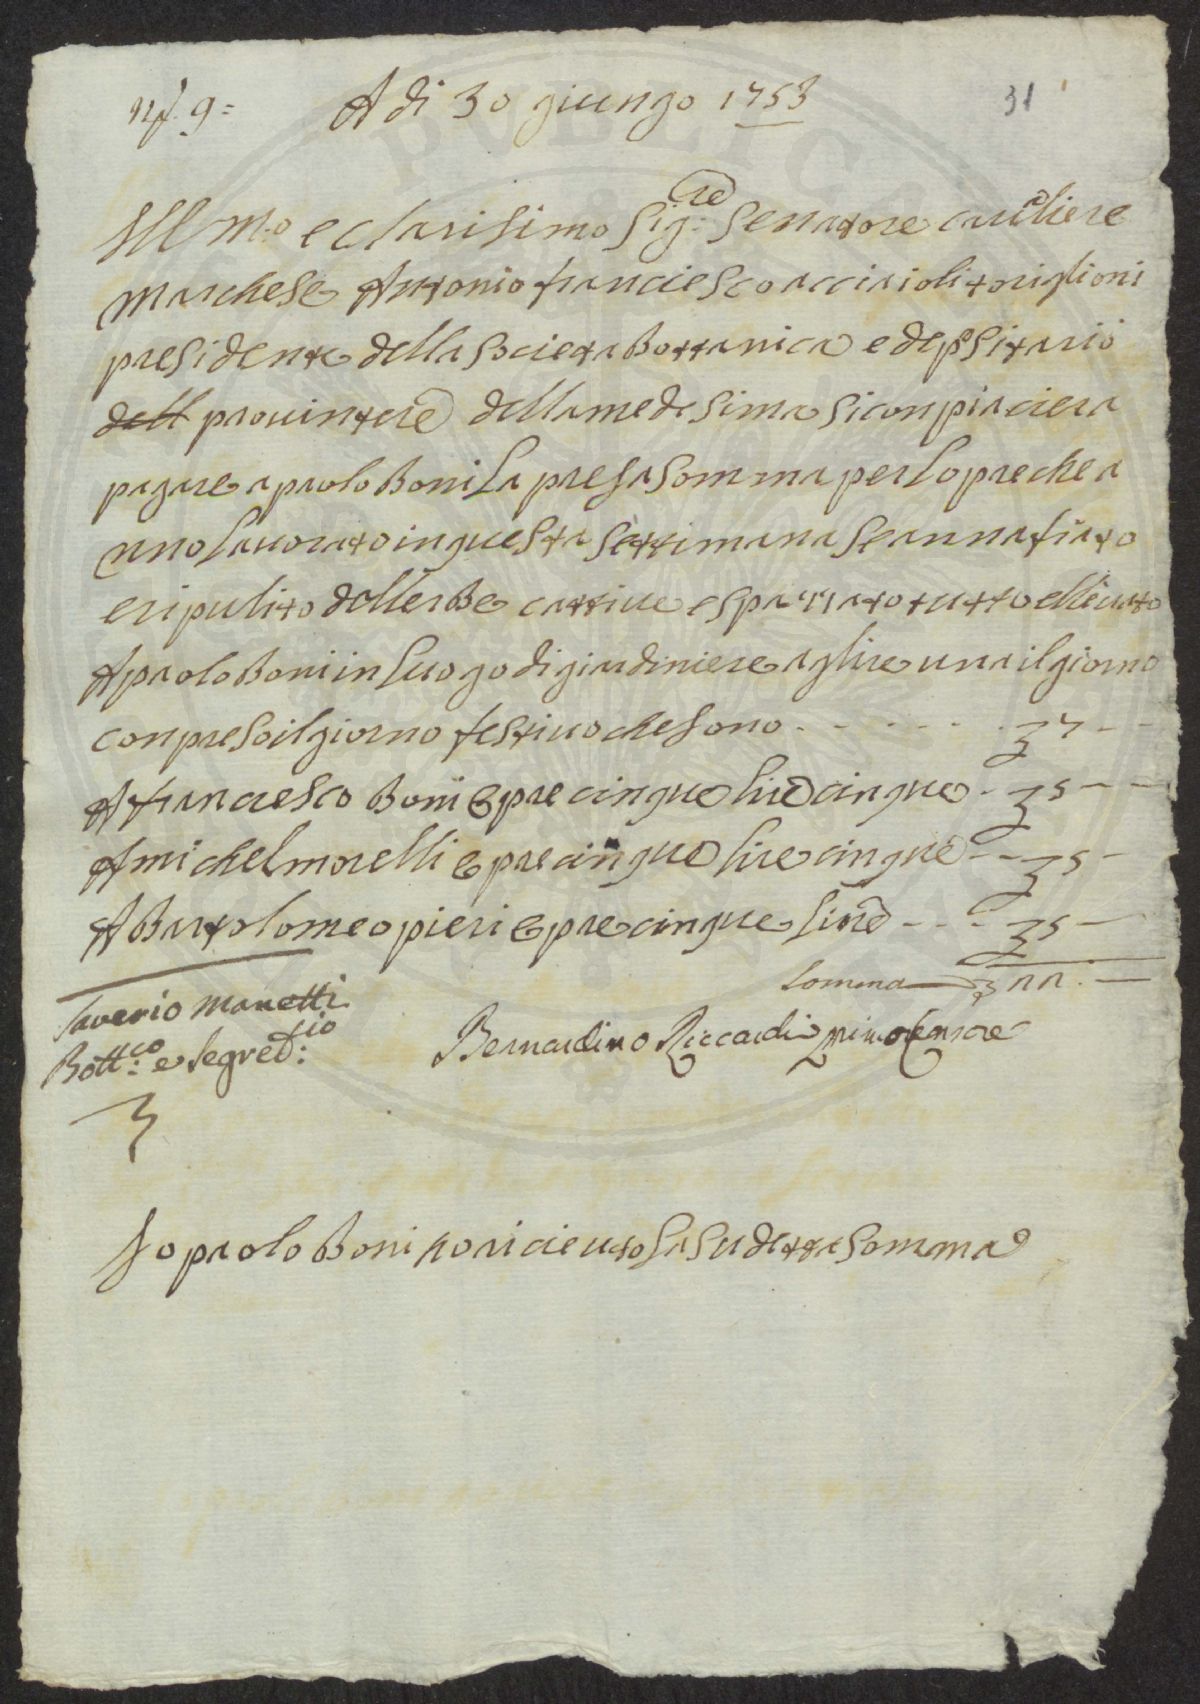 A di 30 giungo 1753
31
Ill m.o e clarisimo Sig:re Senatore caualiere
Marchese Antonio franciesco acciaioli toriglioni
presidente della societa Bottanica e depositario
dell prouintere della medesima si conpiaciera
pagare a paolo Boni la presa somma per lopre che a
nno lauorato in questa settimana se annafiato
e ripulito dallerbe cattiue e spazzato tutto elleuato
A paolo Boni in luogo di giardiniere a glire una il giorno
conpreso il giorno festiuo che sono - - - - - 7 -
A franciesco Boni opre cinque lire cinque - 5 - -
A michel morelli opre cinque lire cinque - - 5 -
A Bartolomeo pieri opre cinque lire - - - 5 -
Somma 22. -
Saverio Manetti
Bott:co e Segret:rio
Bernardino Riccardi primo Censore
Io paolo Boni ho riceuto la sudetta somma